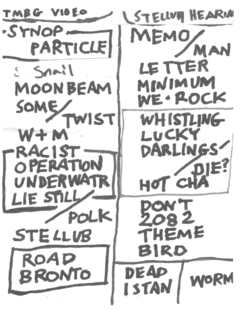 TMBG VIDEO
SYNOP
PARTICLE
Snail
MOONBEAM
SOME/
TWIST
W+M
RACIST
OPERATION
UNDERWATR
LIE STILL
POLK
STELLUB
ROAD
BRONTO
STELLUB HEARIN
MEMO
MAN
LETTER
MINIMUM
WE-ROCK
WHISTLING
LUCKY
DARLINGS/
DIE?
HOT CHA
DON'T
2082
THEME
BIRD
DEAD
ISTAN
WORM